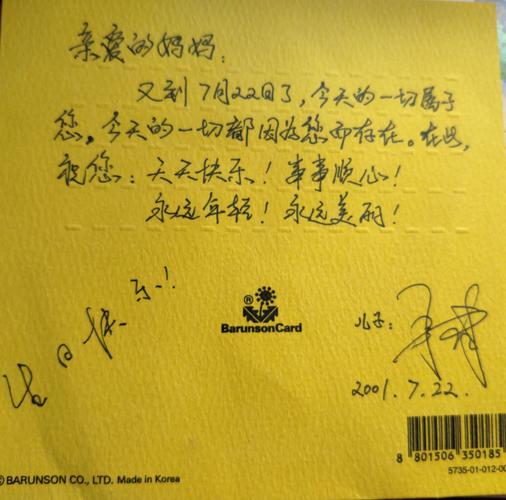 亲爱的妈妈:
又到7月22日了,今天的一切属于
您,今天的一切都因为您而存在。在此,
祝您:天天快乐!事事顺心!
永远年轻!永远美丽!
生日快乐!
®
BarunsonCard
儿子:
2001.7.22.
8 801506 350185
5735-01-012-00
© BARUNSON CO., LTD. Made in Korea